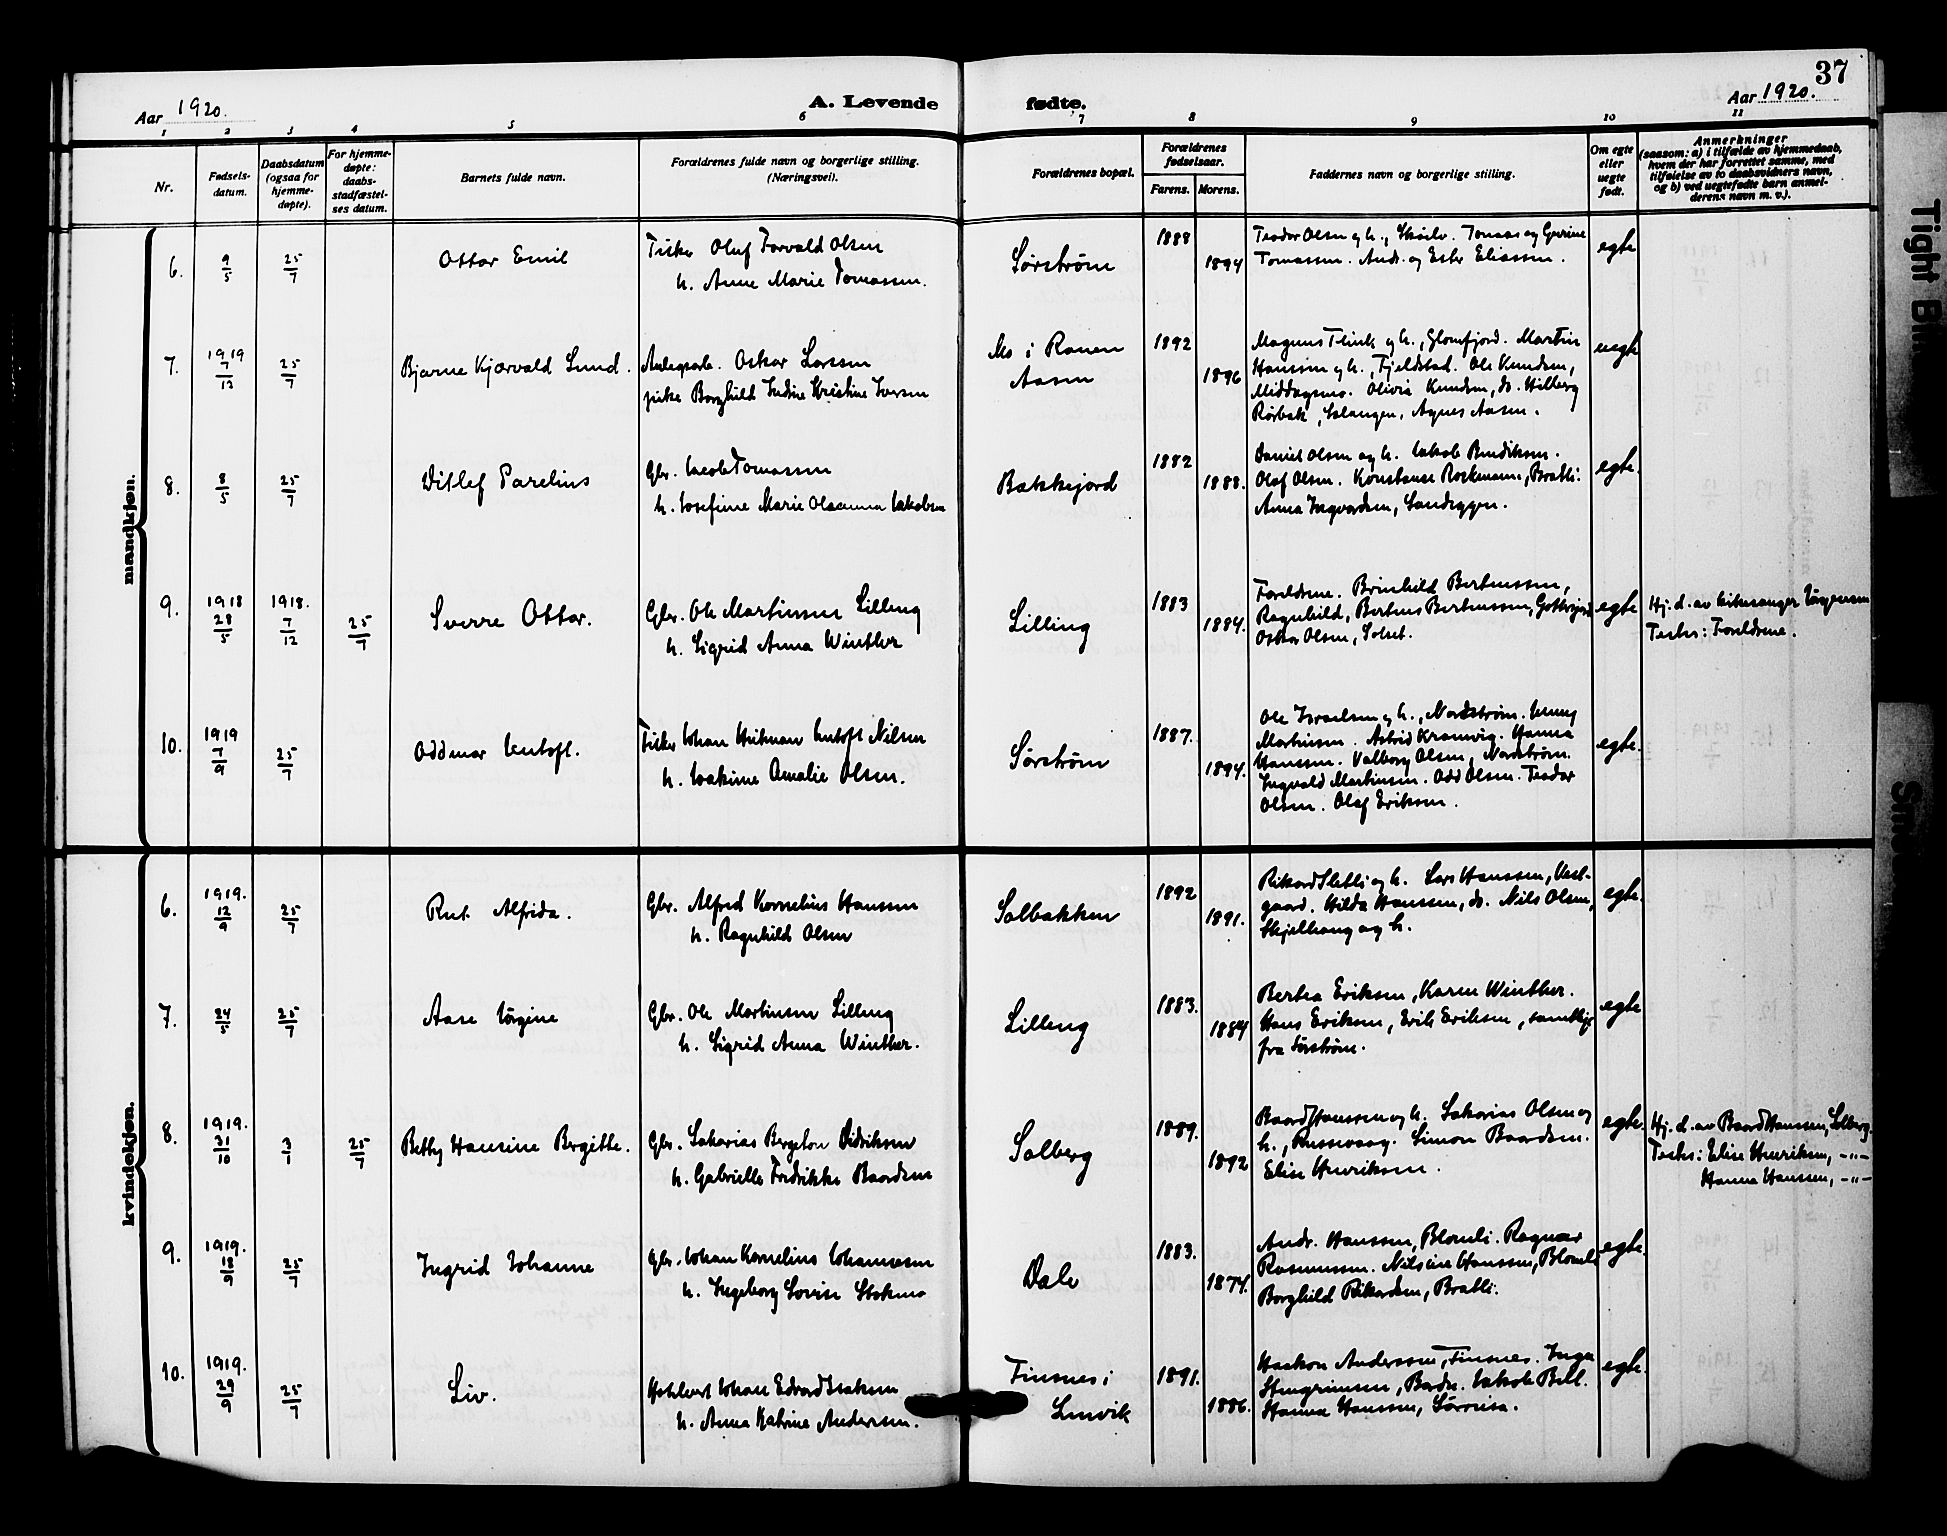 37
Aar 1920.
A. Levende fødte.
Aar 1920.
1 2 3 4 5 6 7 8 9 10 11
Nr.
Fødsels-
datum.
Daabsdatum
(ogsaa for
hjemme-
døpte).
For hjemme-
døpte:
daabs-
stadfæstel-
ses datum.
Barnets fulde navn.
Forældrenes fulde navn og borgerlige stilling.
(Næringsvei).
Forældrenes bopæl.
Forældrenes
fødselsaar.
Farens. Morens.
Faddernes navn og borgerlige stilling.
Om egte
eller
uegte
født.
Anmerkninger
(saasom: a) i tilfælde av hjemmedaab,
hvem der har forrettet samme, med
tilføielse av to daabsvidners navn,
og b) ved uegtefødte barn anmel-
derens navn m. v.).
mandkjøn.
6.
9/5
25/7
Ottar Emil
Fisker Oluf Torvald Olsen
h. Anne Marie Tomassen.
Sørstrøm
1888
1894
Teodor Olsen og h., Tomas og
Tomassen. Andr. og Ester Eliassen.
egte
7.
1919
7/12
25/7
Bjarne Kjarvald Lund.
Oskar Larssen
pike Borghild Indine Kristine Iversen
Mo i Ranen
Aasen
1892
1896
Magnus og h., Glomfjord. Martin
Hanssen og h., Fjeldstad. Ole Knudsen,
Middagsmo. Olivia Knudsen, do. Hilberg
Rørbak, Salangen, Agnes Aasen.
uegte
8.
8/5
25/7
Ditlef Parelius
Gbr. Jacob Tomassen
h. Josefine Marie Olsanna Jakobsen
Bakkejord
1882
1888.
Daniel Olsen og h. Jakob Bendiksen.
Olaf Olsen. Konstanse Bratli.
Anna Ingvardsen, Sandeggen.
egte.
9.
1918
28/5
1918.
7/12
25/7
Sverre Ottar.
Gbr. Ole Martinsen Lilling
h. Sigrid Anna Winther
Lilling
1883
1884.
Foreldrene. Brinhild Berteussen,
Ragnhild, Berteus Berteussen,
Oskar Olsen, Solset.
egte
Hj. d. av kirkesanger Jørgensen
Testes: Foreldrene.
10.
1919
7/9
25/7
Oddmar Jentoft.
Fisker Johan Hitman Jentoft Nilsen
h. Joakime Amalie Olsen.
Sørstrøm
1887.
1894.
Ole Israelsen og h., Nordstrøm. Jenny
Martinsen. Astrid Kramvig. Hanna
Hanssen. Valborg Olsen, Nordstrøm.
Ingvald Martinsen. Odd Olsen. Teodor
Olsen. Olaf Eriksen.
egte.
kvindekjøn.
6.
1919.
12/9
25/7
Rut Alfrida.
Gbr. Alfred Kornelius Hanssen
h. Ragnhild Olsen
Solbakken
1892
1891.
Rikard Sletli og h. Lars Hanssen, Vest-
gaard. Hilda Hanssen, do. Nils Olsen,
Skjelhaug og h.
egte.
7.
24/5
25/7
Aase Jørgine
Gbr. Ole Martinsen Lilling
h. Sigrid Anna Winther.
Lilling
1883.
1884
Bertea Eriksen, Karen Winther.
Hans Eriksen, Erik Eriksen, samtlige
fra Sørstrøm.
egte
8.
1919.
31/10
3/1
25/7
Betty Hansine Bergitte.
Gbr. Sakarias Bergeton Didriksen
h. Gabrielle Fredrikke Baardsen
Solberg
1889.
1892
Baard Hanssen og h. Sakarias Olsen og
h., Russevaag. Simon Baardsen.
Elise Henriksen.
egte.
Hj. d. av Baard Hanssen, Solberg.
Testes: Elise Henriksen, -"-
Hanna Hanssen, -"-
9.
1919.
18/9
25/7
Ingrid Johanne
Gbr. Johan Kornelius Johannesen
h. Ingeborg Lovise Stokmo
Dale
1883.
1874.
Andr. Hanssen, Blomli. Ragnar
Rasmussen. Nilsine Hanssen, Blomli
Borghild Rikardsen, Bratli.
egte.
10.
1919.
29/9
25/7
Liv.
Johan Edvard Isaksen
h. Anna Katrine Andersen.
Finsnes i
Lenvik
1891.
1886.
Haakon Anderssen, Finsnes. Inga
Steingrimsen, Bodø. Jakob Bell.
Hanna Hanssen, Sørreisa.
egte.
Tight Bi